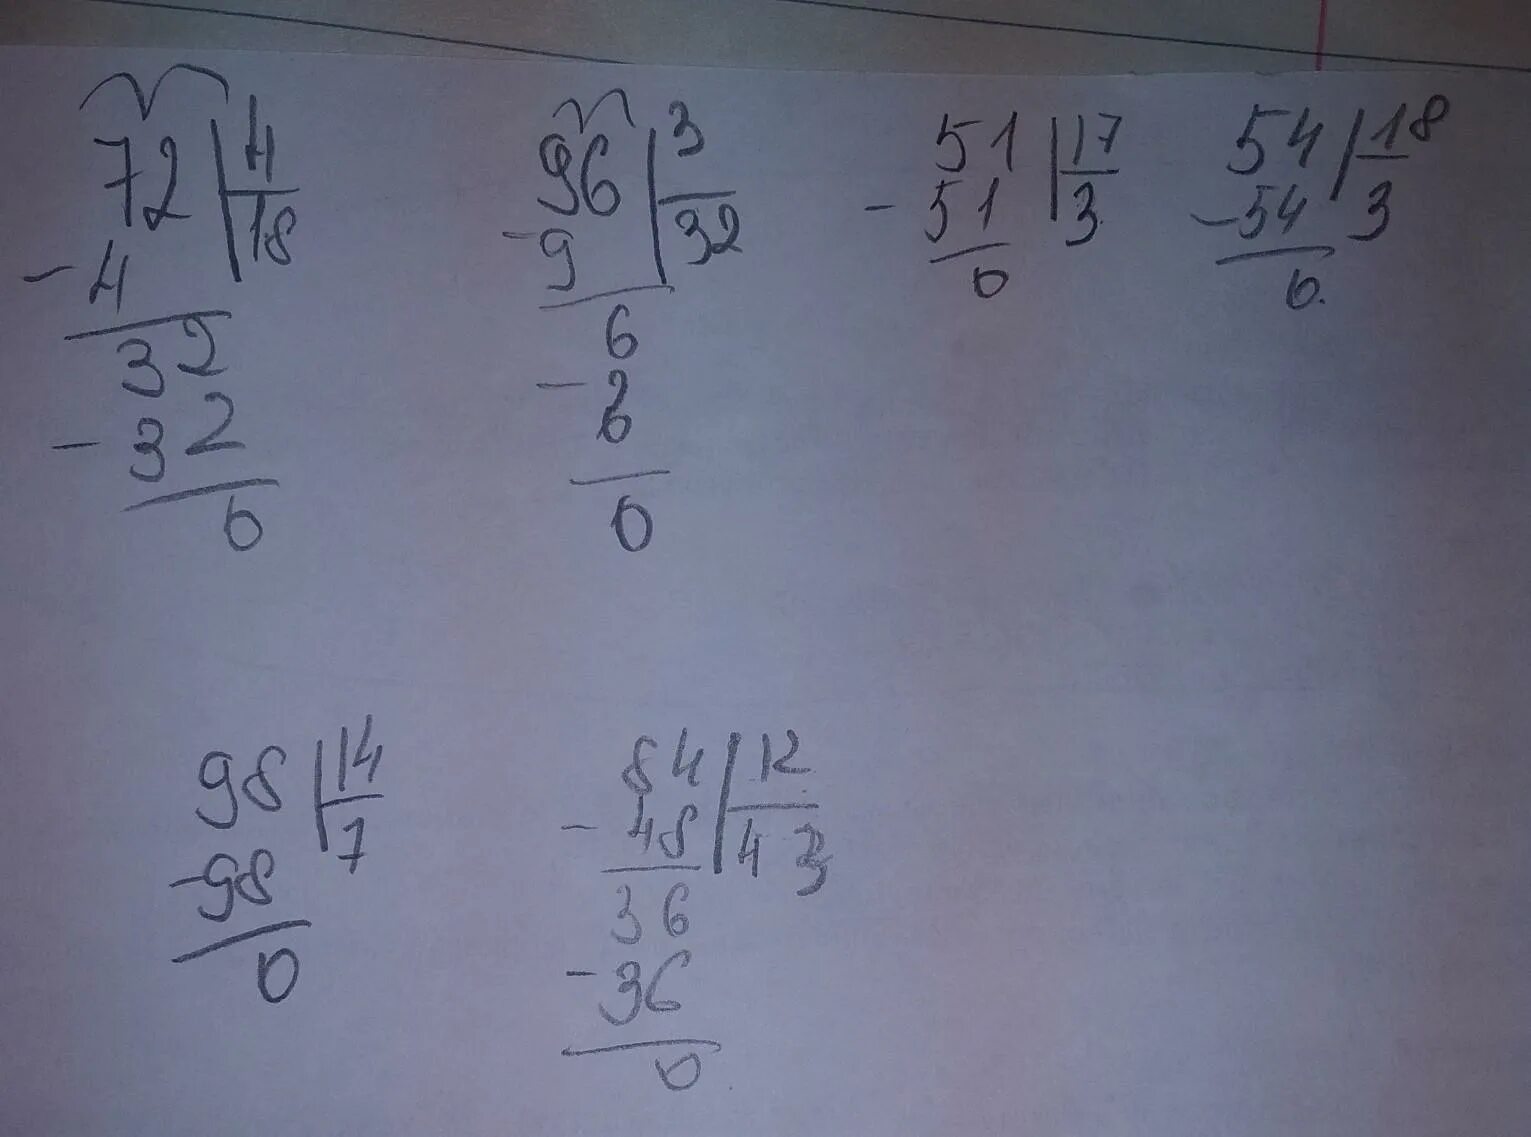 72 | 4
- 4 | 18
32
- 32
0
96 | 3
- 9 | 32
6
- 6
0
51 | 17
- 51 | 3
0
54 | 18
- 54 | 3
0
98 | 14
- 98 | 7
0
84 | 12
- 48 | 4 3
36
- 36
0